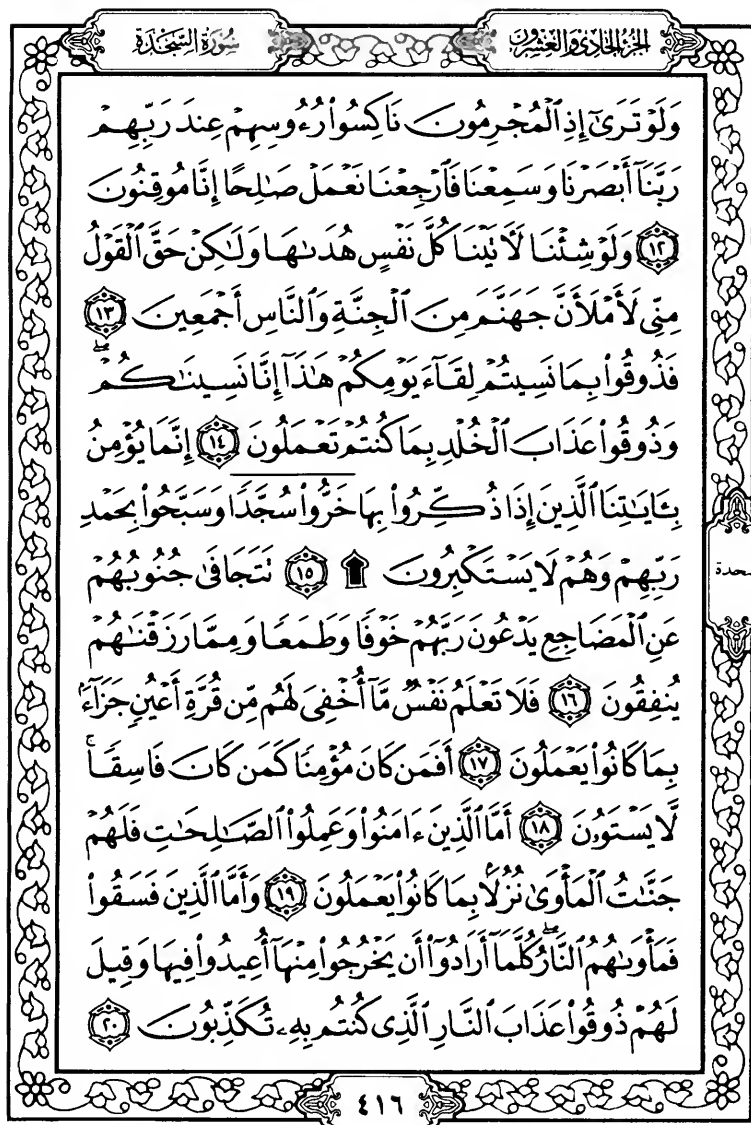 سُورَةُ السَّجۡدَةِ
الجُزْءُ الحَادِي وَالعِشْرُونَ
وَلَوۡ تَرَىٰٓ إِذِ ٱلۡمُجۡرِمُونَ نَاكِسُواْ رُءُوسِهِمۡ عِندَ رَبِّهِمۡ
رَبَّنَآ أَبۡصَرۡنَا وَسَمِعۡنَا فَٱرۡجِعۡنَا نَعۡمَلۡ صَٰلِحًا إِنَّا مُوقِنُونَ
١٢ وَلَوۡ شِئۡنَا لَأٓتَيۡنَا كُلَّ نَفۡسٍ هُدَىٰهَا وَلَٰكِنۡ حَقَّ ٱلۡقَوۡلُ
مِنِّي لَأَمۡلَأَنَّ جَهَنَّمَ مِنَ ٱلۡجِنَّةِ وَٱلنَّاسِ أَجۡمَعِينَ ١٣
فَذُوقُواْ بِمَا نَسِيتُمۡ لِقَآءَ يَوۡمِكُمۡ هَٰذَآ إِنَّا نَسِينَٰكُمۡۖ
وَذُوقُواْ عَذَابَ ٱلۡخُلۡدِ بِمَا كُنتُمۡ تَعۡمَلُونَ ١٤ إِنَّمَا يُؤۡمِنُ
بِـَٔايَٰتِنَا ٱلَّذِينَ إِذَا ذُكِّرُواْ بِهَا خَرُّواْ سُجَّدٗا وَسَبَّحُواْ بِحَمۡدِ
رَبِّهِمۡ وَهُمۡ لَا يَسۡتَكۡبِرُونَ ۩ ١٥ تَتَجَافَىٰ جُنُوبُهُمۡ
عَنِ ٱلۡمَضَاجِعِ يَدۡعُونَ رَبَّهُمۡ خَوۡفٗا وَطَمَعٗا وَمِمَّا رَزَقۡنَٰهُمۡ
يُنفِقُونَ ١٦ فَلَا تَعۡلَمُ نَفۡسٞ مَّآ أُخۡفِيَ لَهُم مِّن قُرَّةِ أَعۡيُنٖ جَزَآءَۢ
بِمَا كَانُواْ يَعۡمَلُونَ ١٧ أَفَمَن كَانَ مُؤۡمِنٗا كَمَن كَانَ فَاسِقٗاۚ
لَّا يَسۡتَوُۥنَ ١٨ أَمَّا ٱلَّذِينَ ءَامَنُواْ وَعَمِلُواْ ٱلصَّٰلِحَٰتِ فَلَهُمۡ
جَنَّٰتُ ٱلۡمَأۡوَىٰ نُزُلَۢا بِمَا كَانُواْ يَعۡمَلُونَ ١٩ وَأَمَّا ٱلَّذِينَ فَسَقُواْ
فَمَأۡوَىٰهُمُ ٱلنَّارُۖ كُلَّمَآ أَرَادُوٓاْ أَن يَخۡرُجُواْ مِنۡهَآ أُعِيدُواْ فِيهَا وَقِيلَ
لَهُمۡ ذُوقُواْ عَذَابَ ٱلنَّارِ ٱلَّذِي كُنتُم بِهِۦ تُكَذِّبُونَ ٢٠
٤١٦